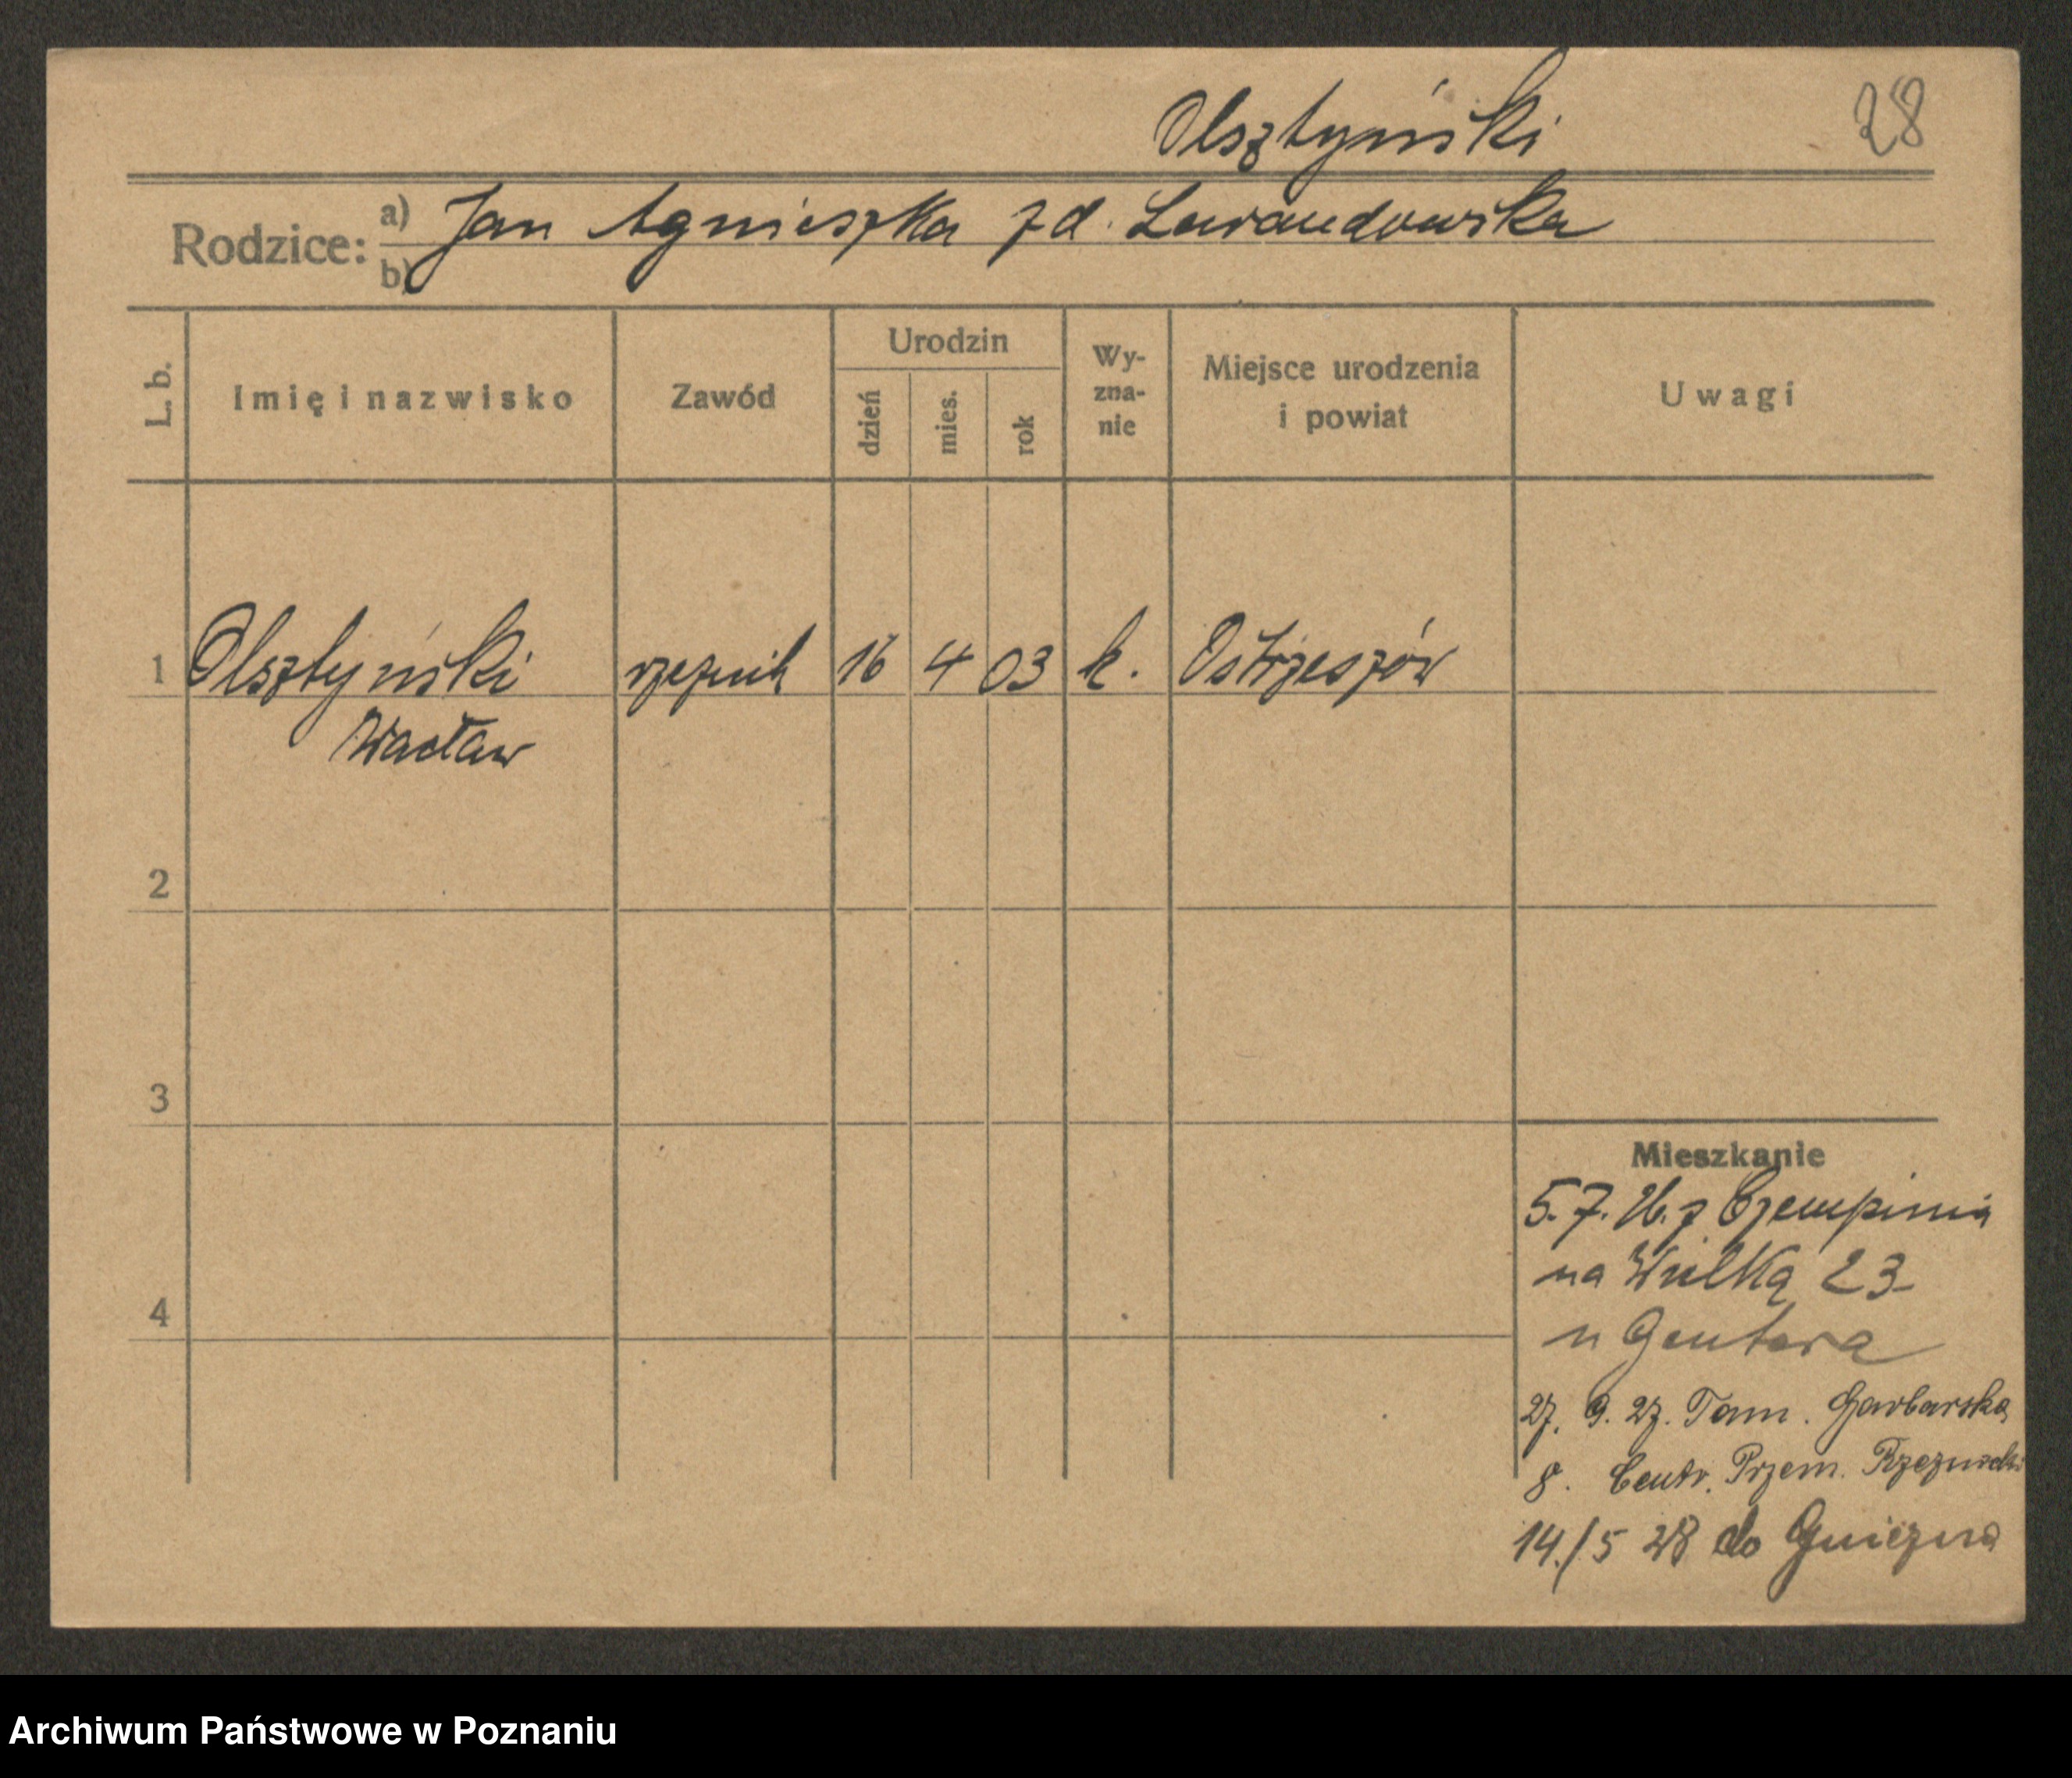 Olsztyński
28
Rodzice: a) Jan Agnieszka zd. Lewandowska
b)
L. b. Imię i nazwisko Zawód Urodzin dzień mies. rok Wy-zna-nie Miejsce urodzenia i powiat Uwagi
1 Olsztyński rzeźnik 16 4 03 k. Ostrzeszów
Wacław
2
3
4
Mieszkanie
5.7.26. z Czempinia
na Wielką 23
u Gentera
27. 9. 27. Tam. Garbarska
8. Centr. Przem. Rzeźnicki
14./5 28 do Gniezna
Archiwum Państwowe w Poznaniu